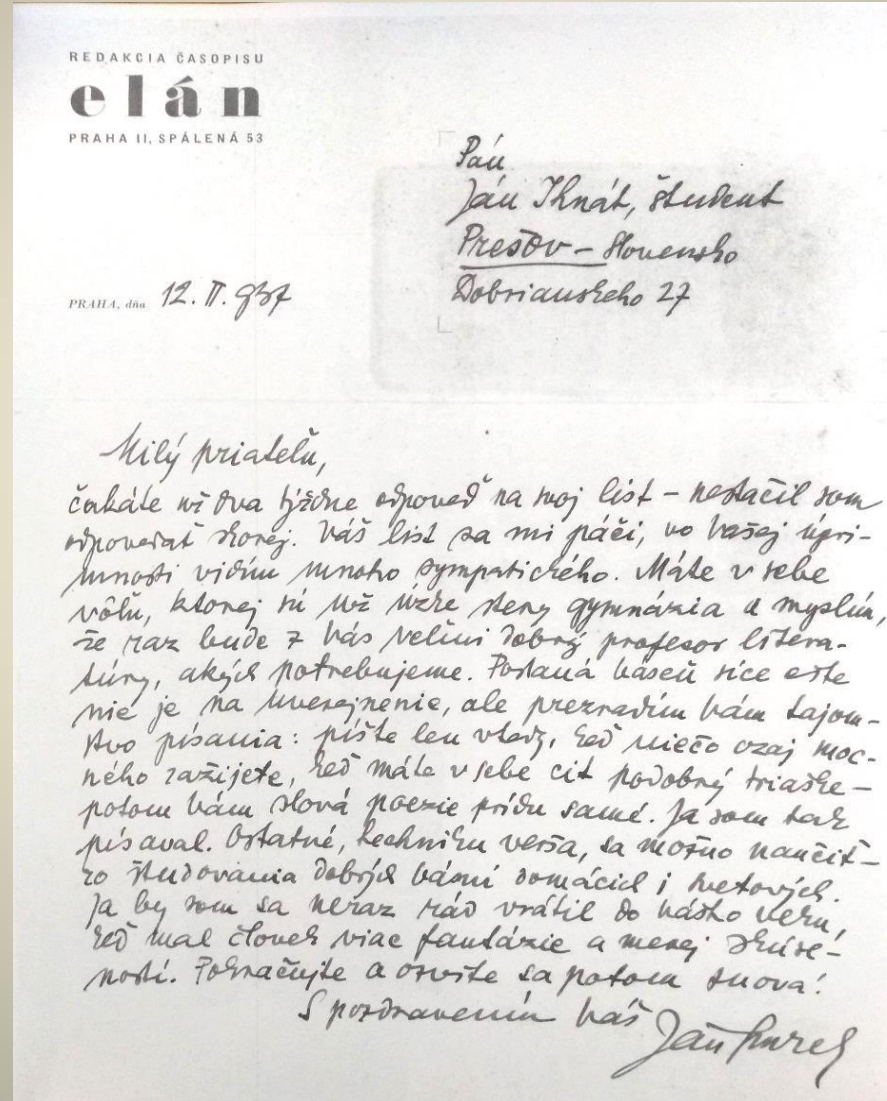 REDAKCIA ČASOPISU
elán
PRAHA II, SPÁLENÁ 53
Pán
Ján Ihnát, študent
Prešov – Slovensko
Dobrianskeho 27
PRAHA, dňa 12. II. 937
Milý priateľu,
čakáte už dva týždne odpoveď na svoj list – nestačil som
odpovedať skorej. Váš list sa mi páči, vo Vašej úpri-
mnosti vidím mnoho sympatického. Máte v sebe
vôľu, ktorej sú už úzke steny gymnázia a myslím,
že raz bude z Vás veľmi dobrý profesor litera-
túry, akých potrebujeme. Poslaná báseň síce ešte
nie je na uverejnenie, ale prezradím Vám tajom-
stvo písania: píšte len vtedy, keď niečo ozaj moc-
ného zažijete, keď máte v sebe cit podobný triaške –
potom Vám slová poezie prídu samé. Ja som tak
písaval. Ostatné, techniku verša, sa možno naučiť –
zo študovania dobrých básní domácich i svetových.
Ja by som sa neraz rád vrátil do Vášho veku,
keď mal človek viac fantázie a menej skúse-
ností. Pokračujte a ozvite sa potom znova!
S pozdravením Váš
Ján Smrek